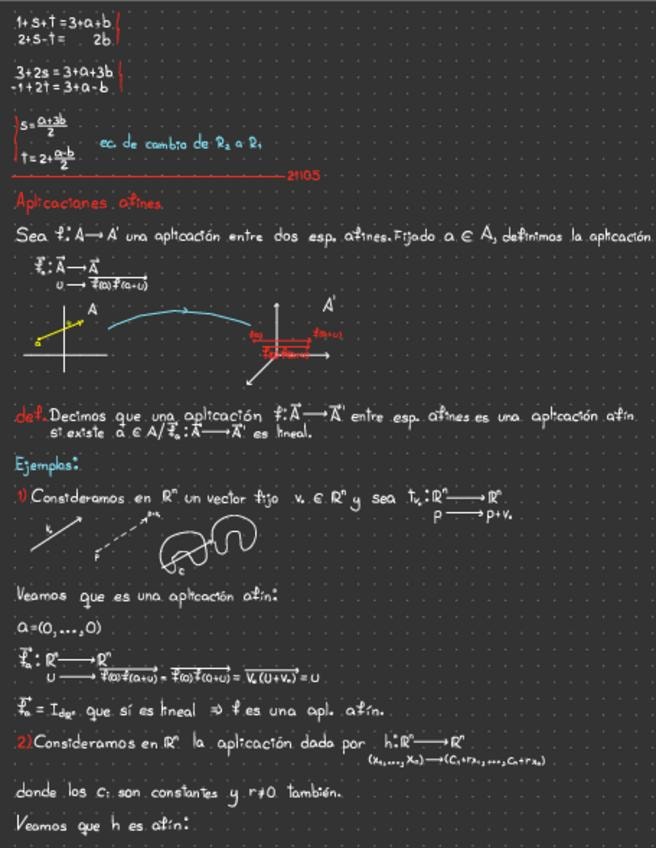 1+s+t=3+a+b
2+s-t= 2b
3+2s=3+a+3b
-1+2t=3+a-b
s=a+3b/2
ec. de cambio de R₂ a R₁
t=2+a-b/2
21105
Aplicaciones afines.
Sea f:A→A' una aplicación entre dos esp. afines. Fijado a ∈ A, definimos la aplicación
f⃗ₐ:A⃗→A⃗
u→f(a)f(a+u)
A
A'
a
f(a)
f(a+u)
def. Decimos que una aplicación f:A⃗→A⃗' entre esp. afines es una aplicación afín
si existe a ∈ A/f⃗ₐ:A⃗→A⃗' es lineal.
Ejemplos:
1) Consideramos en Rⁿ un vector fijo v₀ ∈ Rⁿ y sea tᵥ₀:Rⁿ→Rⁿ
p→p+v₀
p
C
Veamos que es una aplicación afín:
a=(0,...,0)
f⃗ₐ:Rⁿ→Rⁿ
u→f(a)f(a+u) = f(0)f(0+u) = v₀(u+v₀) = u
f⃗ₐ=Id_Rⁿ que sí es lineal ⇒ f es una apl. afín.
2) Consideramos en Rⁿ la aplicación dada por h:Rⁿ→Rⁿ
(x₁,...,xₙ)→(c₁+rx₁,...,cₙ+rxₙ)
donde los cᵢ son constantes y r≠0 también.
Veamos que h es afín: